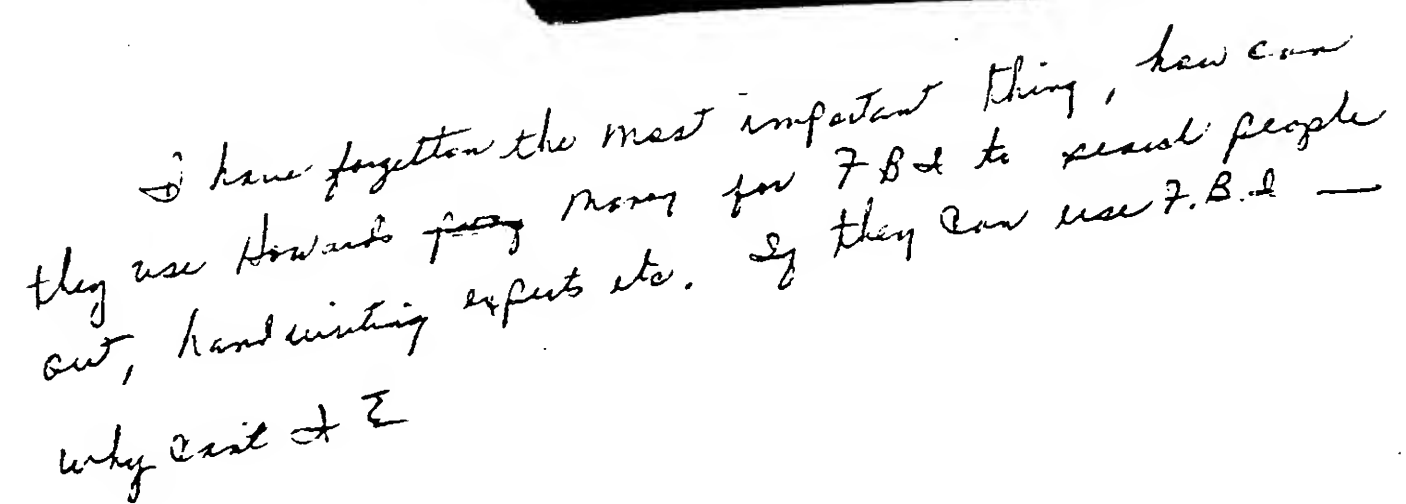 I have forgetten the most important thing, how can
they use Howards money for F B I to search people
out, handwriting experts etc. If they can use F.B.I —
why can't I